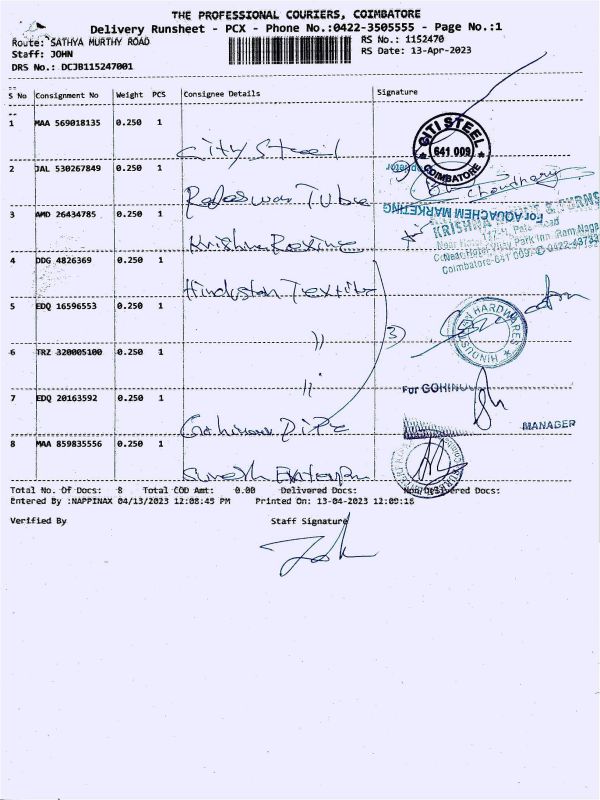 THE PROFESSIONAL COURIERS, COIMBATORE
Delivery Runsheet - PCX - Phone No.:0422-3505555 - Page No.:1
Route: SATHYA MURTHY ROAD
RS No.: 1152470
Staff: JOHN
RS Date: 13-Apr-2023
DRS No.: DCJB115247001
S No Consignment No Weight PCS Consignee Details Signature
1 MAA 569018135 0.250 1 City Steel
CITI STEEL
641 009
COIMBATORE
2 JAL 530267849 0.250 1
Choudhary
For AQUACHEM MARKETING
3 AMD 26434785 0.250 1 Krishna
KRISHNA
Coimbatore-641 009.
4 DDG 4826369 0.250 1 Hindustan Textile
5 EDQ 16596553 0.250 1 "
3
HARDWARES
HINDUSTAN
6 TRZ 320005100 0.250 1 "
7 EDQ 20163592 0.250 1
For GOHINOO
MANAGER
8 MAA 859835556 0.250 1 Suresh
Total No. Of Docs: 8 Total COD Amt: 0.00 Delivered Docs: Non Delivered Docs:
Entered By :NAPPINAX 04/13/2023 12:08:45 PM Printed On: 13-04-2023 12:09:16
Verified By Staff Signature